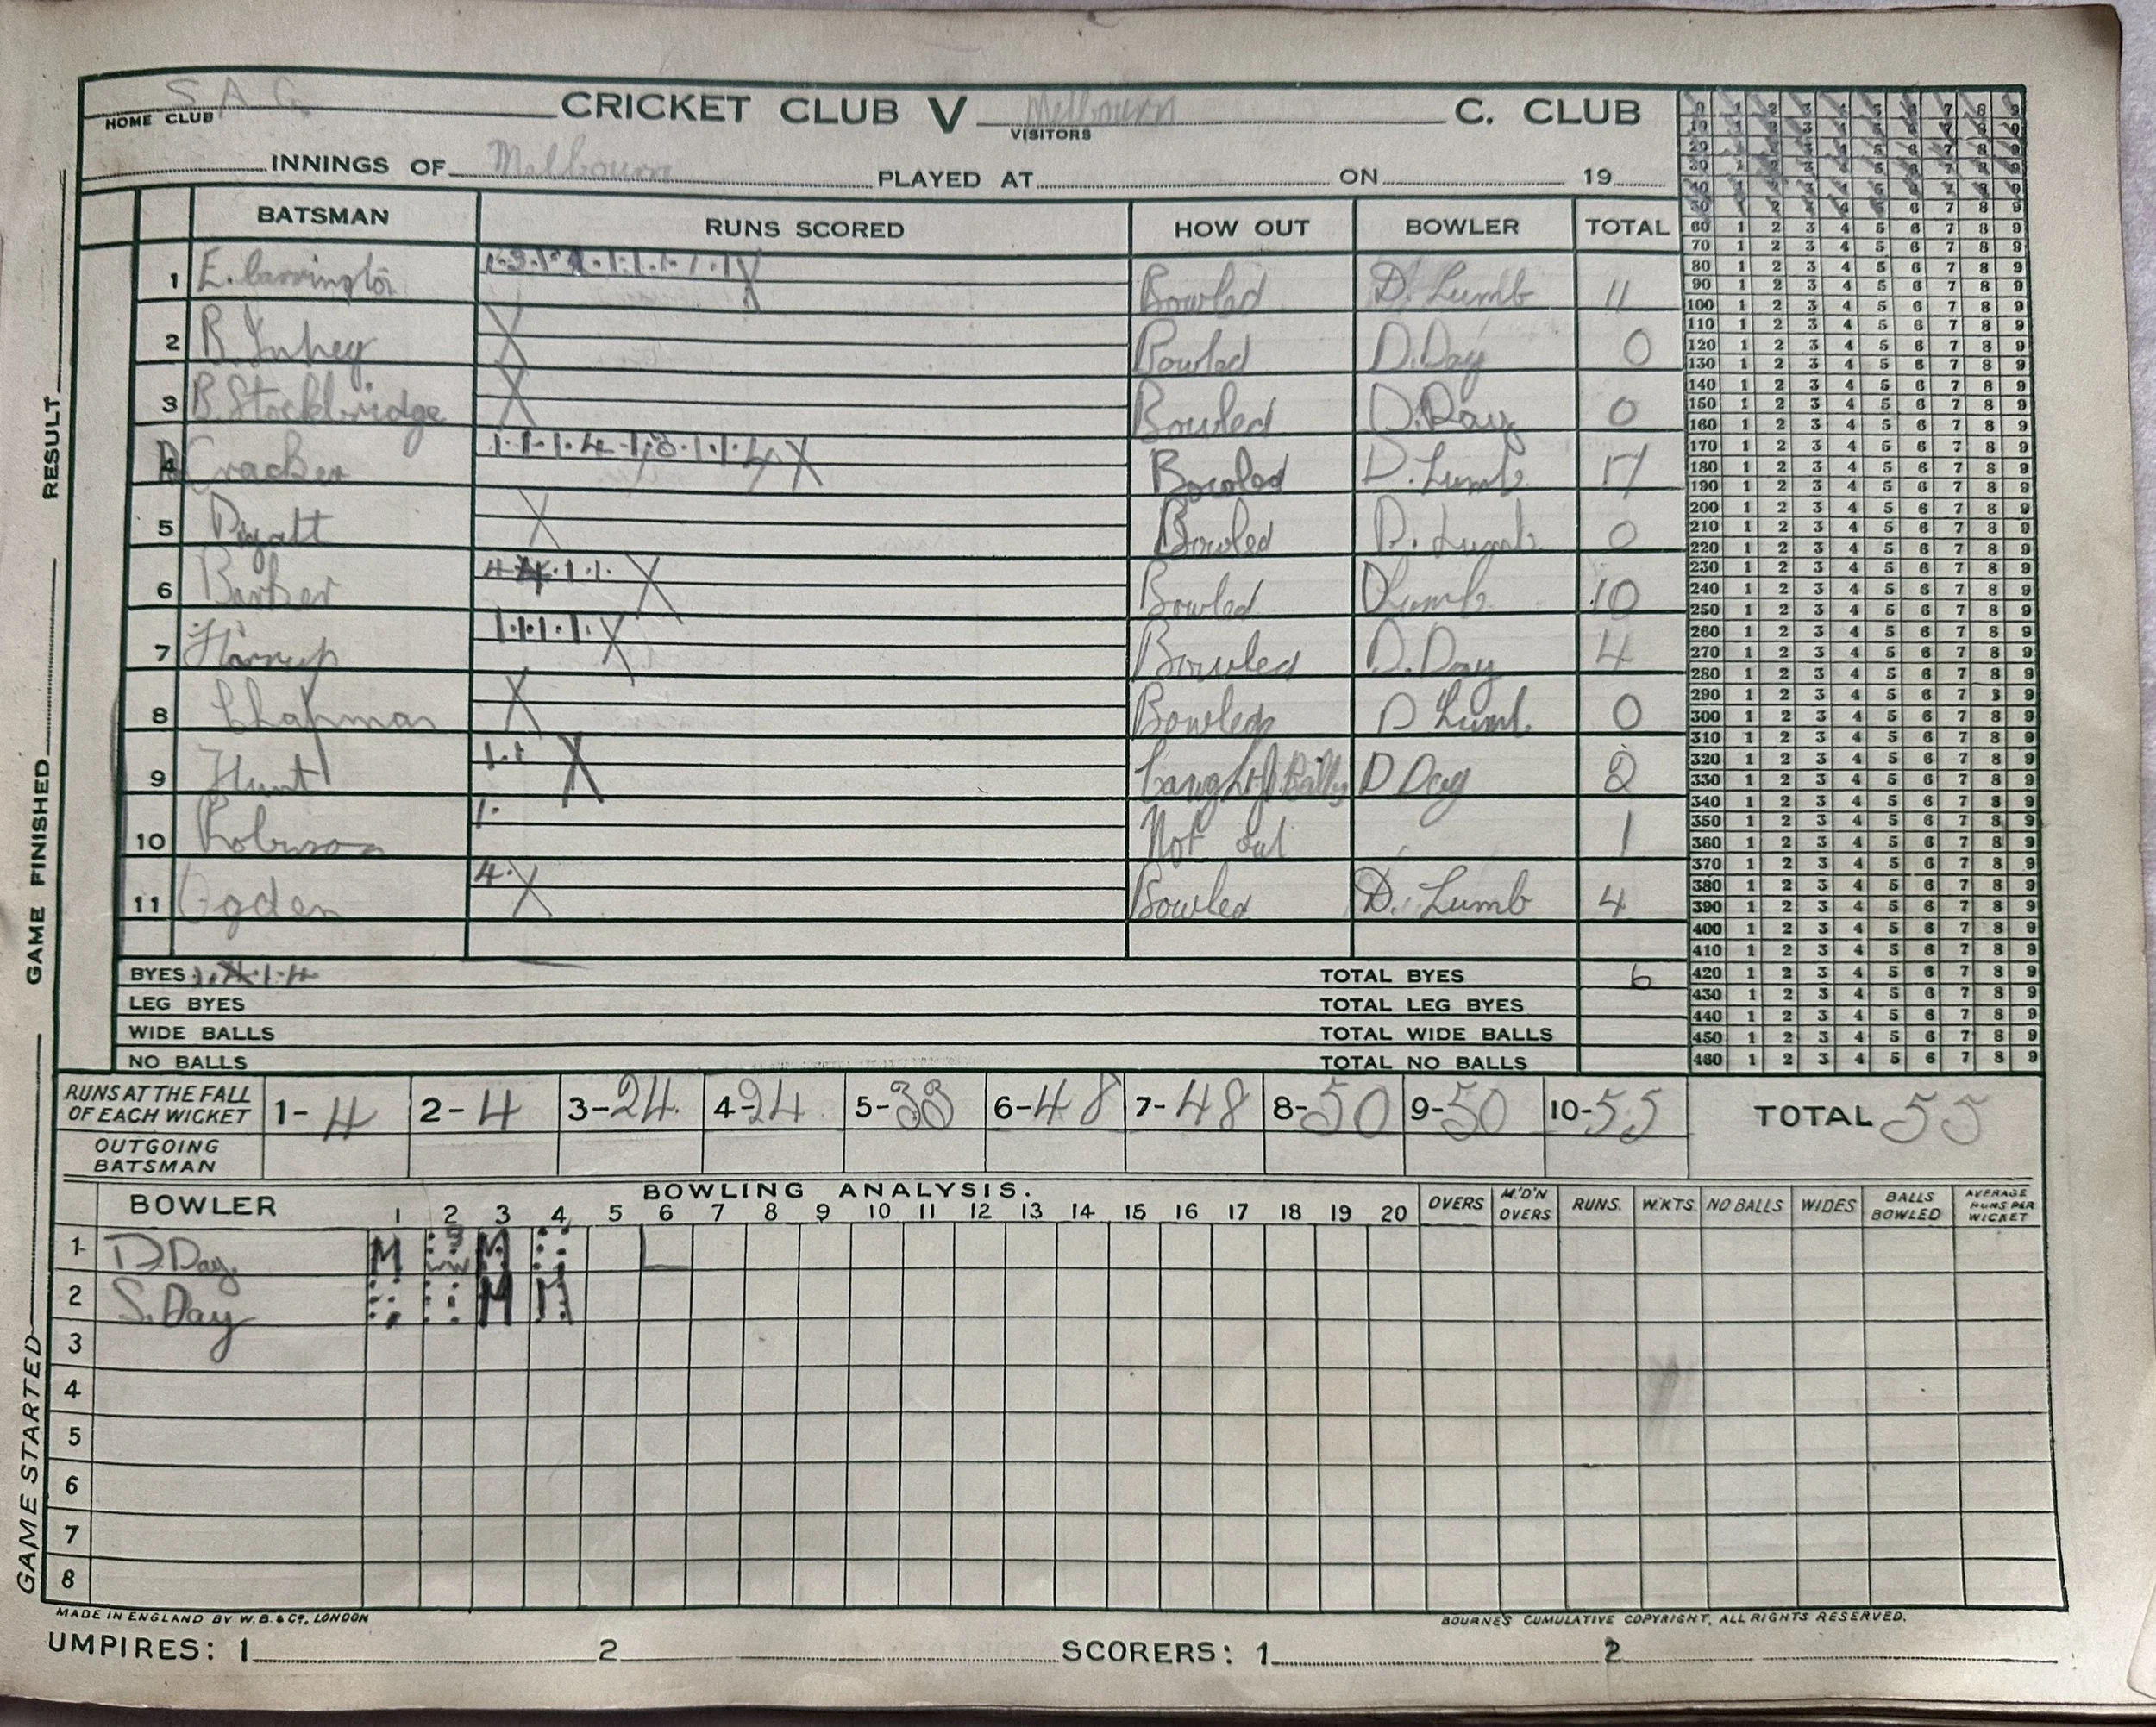 S A C CRICKET CLUB V Melbourn C. CLUB
HOME CLUB VISITORS
INNINGS OF Melbourn PLAYED AT ON 19
BATSMAN RUNS SCORED HOW OUT BOWLER TOTAL
1 E. Carrington Bowled D. Lumb 11
2 B. Bowled D. Day 0
3 B. Stockbridge Bowled D. Day 0
4 Cracker 1 · 1 · 1 · 4 · 1 · 3 · 1 · 1 · 4 X Bowled D. Lumb 17
5 Pyatt X Bowled D. Lumb 0
6 Barker 4 4 · 1 · 1 · X Bowled D Lumb 10
7 1 · 1 · 1 · 1 · X Bowled D. Day 4
8 Chapman X Bowled D Lumb 0
9 Hunt 1 · 1 X Caught D Day 2
10 Robinson 1 · Not out 1
11 Ogden 4 · X Bowled D. Lumb 4
BYES TOTAL BYES 6
LEG BYES TOTAL LEG BYES
WIDE BALLS TOTAL WIDE BALLS
NO BALLS TOTAL NO BALLS
RUNS AT THE FALL OF EACH WICKET 1- 4 2- 4 3- 24 4- 24 5- 38 6- 48 7- 48 8- 50 9- 50 10- 55 TOTAL 55
OUTGOING BATSMAN
BOWLING ANALYSIS.
BOWLER 1 2 3 4 5 6 7 8 9 10 11 12 13 14 15 16 17 18 19 20 OVERS M'D'N OVERS RUNS. WKTS. NO BALLS WIDES BALLS BOWLED AVERAGE RUNS PER WICKET
1 D. Day M M
2 S. Day M M
3
4
5
6
7
8
MADE IN ENGLAND BY W. B. & Co., LONDON BOURNE'S CUMULATIVE COPYRIGHT, ALL RIGHTS RESERVED.
UMPIRES: 1 2 SCORERS: 1 2
GAME STARTED GAME FINISHED RESULT
0 1 2 3 4 5 6 7 8 9
10 1 2 3 4 5 6 7 8 9
20 1 2 3 4 5 6 7 8 9
30 1 2 3 4 5 6 7 8 9
40 1 2 3 4 5 6 7 8 9
50 1 2 3 4 5 6 7 8 9
60 1 2 3 4 5 6 7 8 9
70 1 2 3 4 5 6 7 8 9
80 1 2 3 4 5 6 7 8 9
90 1 2 3 4 5 6 7 8 9
100 1 2 3 4 5 6 7 8 9
110 1 2 3 4 5 6 7 8 9
120 1 2 3 4 5 6 7 8 9
130 1 2 3 4 5 6 7 8 9
140 1 2 3 4 5 6 7 8 9
150 1 2 3 4 5 6 7 8 9
160 1 2 3 4 5 6 7 8 9
170 1 2 3 4 5 6 7 8 9
180 1 2 3 4 5 6 7 8 9
190 1 2 3 4 5 6 7 8 9
200 1 2 3 4 5 6 7 8 9
210 1 2 3 4 5 6 7 8 9
220 1 2 3 4 5 6 7 8 9
230 1 2 3 4 5 6 7 8 9
240 1 2 3 4 5 6 7 8 9
250 1 2 3 4 5 6 7 8 9
260 1 2 3 4 5 6 7 8 9
270 1 2 3 4 5 6 7 8 9
280 1 2 3 4 5 6 7 8 9
290 1 2 3 4 5 6 7 8 9
300 1 2 3 4 5 6 7 8 9
310 1 2 3 4 5 6 7 8 9
320 1 2 3 4 5 6 7 8 9
330 1 2 3 4 5 6 7 8 9
340 1 2 3 4 5 6 7 8 9
350 1 2 3 4 5 6 7 8 9
360 1 2 3 4 5 6 7 8 9
370 1 2 3 4 5 6 7 8 9
380 1 2 3 4 5 6 7 8 9
390 1 2 3 4 5 6 7 8 9
400 1 2 3 4 5 6 7 8 9
410 1 2 3 4 5 6 7 8 9
420 1 2 3 4 5 6 7 8 9
430 1 2 3 4 5 6 7 8 9
440 1 2 3 4 5 6 7 8 9
450 1 2 3 4 5 6 7 8 9
460 1 2 3 4 5 6 7 8 9